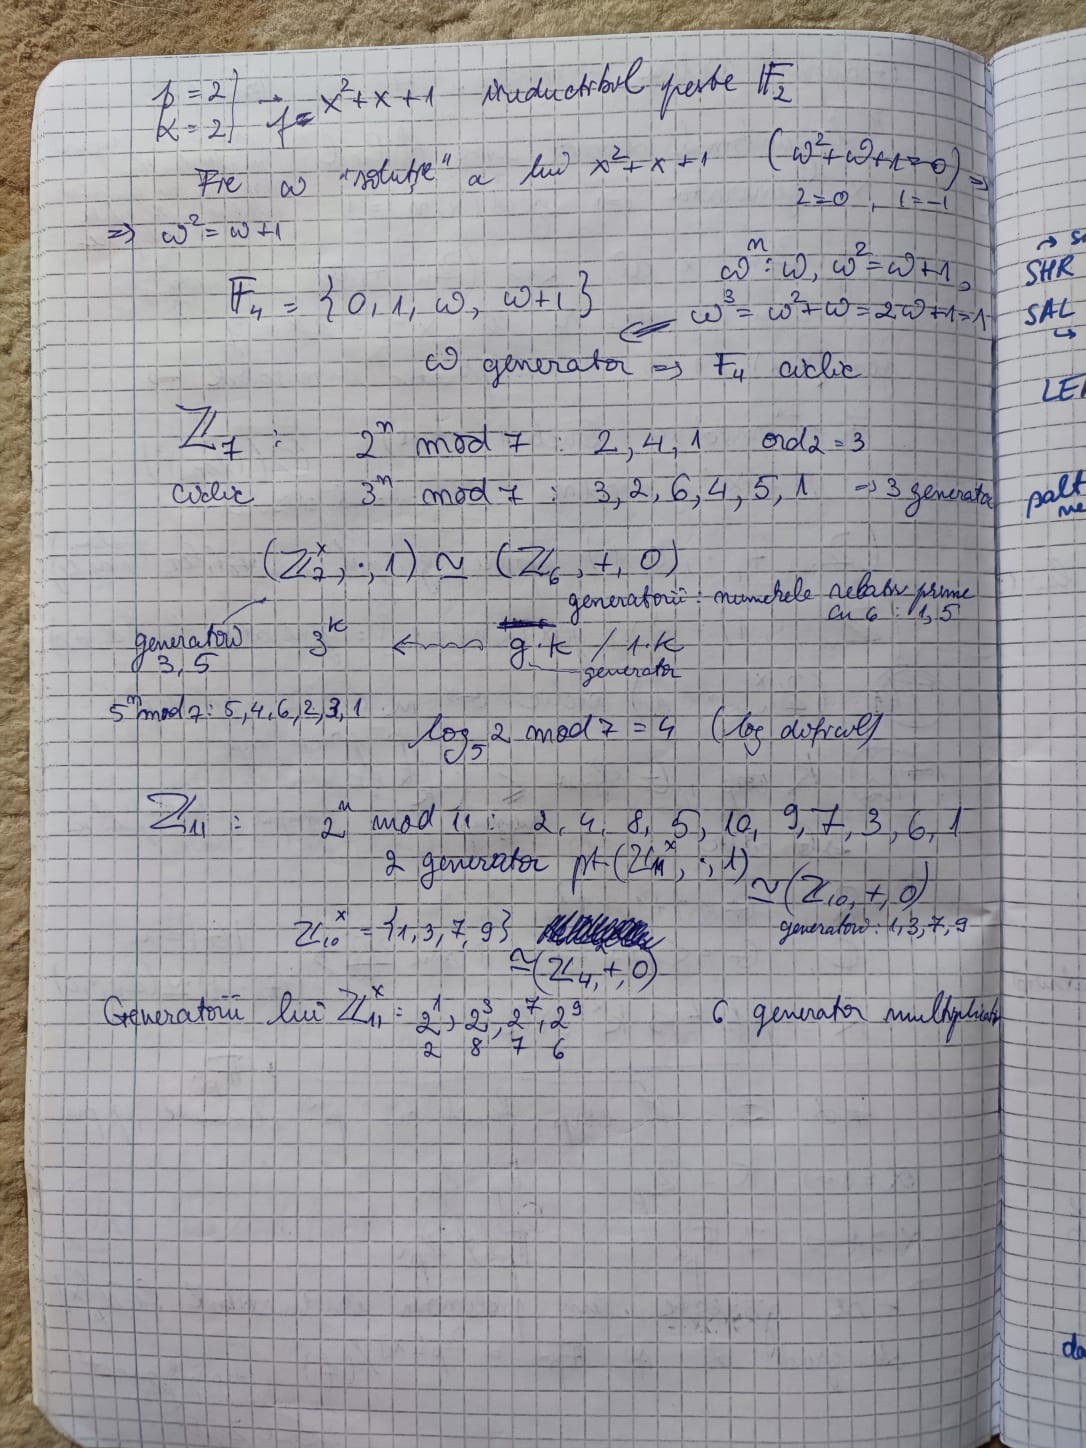 p = 2
α = 2 } → f = x²+x+1 ireductibil peste 𝔽₂
Fie ω "soluție" a lui x²+x+1 (ω²+ω+1=0) ⇒
2=0, 1=-1
⇒ ω² = ω+1
ωⁿ: ω, ω²=ω+1,
𝔽₄ = {0, 1, ω, ω+1}
ω³ = ω²+ω = 2ω+1=1
ω generator ⇒ F₄ ciclic
ℤ₇ : 2ⁿ mod 7 : 2, 4, 1 ord2 = 3
ciclic 3ⁿ mod 7 : 3, 2, 6, 4, 5, 1 ⇒ 3 generator
(ℤ₇ˣ, ·, 1) ≃ (ℤ₆, +, 0)
generatorii: numerele relativ prime
cu 6 : 1, 5
generatori 3ᵏ ← g·k / 1·k
3, 5 generator
5ⁿ mod 7: 5, 4, 6, 2, 3, 1
log₅ 2 mod 7 = 4 (log dificil)
ℤ₁₁ : 2ⁿ mod 11 : 2, 4, 8, 5, 10, 9, 7, 3, 6, 1
2 generator pt (ℤ₁₁ˣ, ·, 1)
≃ (ℤ₁₀, +, 0)
ℤ₁₀ˣ = {1, 3, 7, 9} generatori: 1, 3, 7, 9
≃ (ℤ₄, +, 0)
Generatorii lui ℤ₁₁ˣ : 2¹, 2³, 2⁷, 2⁹ 6 generator multiplicativ
2 8 7 6
SHR
SAL